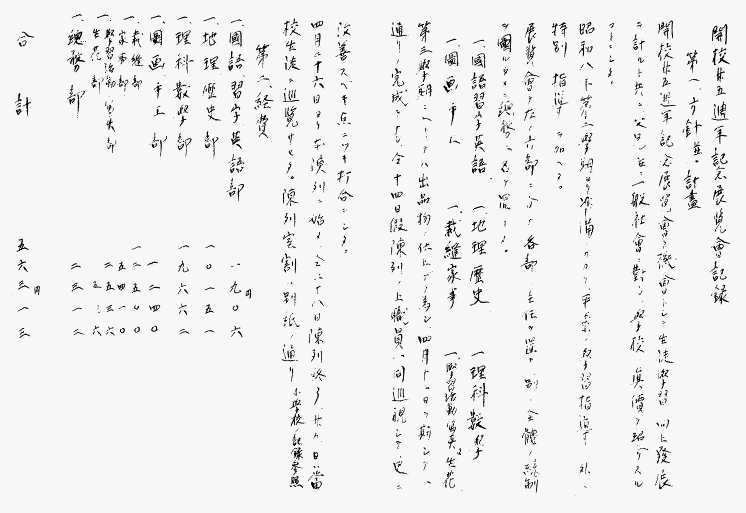 開校廿五週年記念展覧會記録
第一、方針並ニ計畫
開校廿五週年記念展覧會ヲ機會トシテ生徒學習ノ向上發展
ニ計ルト共ニ父兄並ニ一般社會ニ對シ學校ノ真價ヲ紹介スル
コトニシタ。
昭和八年第二學期ヨリ準備ニカカリ平素ノ學習指導ノ外ニ
特別ノ指導ヲ加ヘタ。
展覧會ヲ左ノ六部ニ分チ各部ノ主任ヲ置キ別ニ全體ノ統制
ヲ圖ルタメニ總務ニ名ヲ置イタ。
一、國語習字英語 一、地理歴史 一、理科數學
一、圖画手工 一、裁縫家事 一、學習活動寫真生花
第三學期ニ入リテハ出品物ノ仕上ゲヲ急ギ四月十一日ヲ期シテ
通リ完成ヲナシ仝十四日假陳列ノ上職員一同巡視シテ更ニ
改善スベキ点ニツキ打合ヲシタ。
四月二十六日ヨリ本陳列ニ始メ仝二十八日陳列終了廿九日ハ當
校生徒ニ巡覧サセタ。陳列室割ハ別紙ノ通リ 小學校ノ記録参照
第二、経費
一、國語習字英語部 一九〇六円
一、地理歴史部 一〇一五一
一、理科數學部 一九六六二
一、圖画手工部 一二四〇
一、裁縫部 一二五〇〇
家事部 五四一〇
一、學習活動寫真部 二五三六
一、生花部 五三六
一、總務部 二三一二
合計 五六三一三円